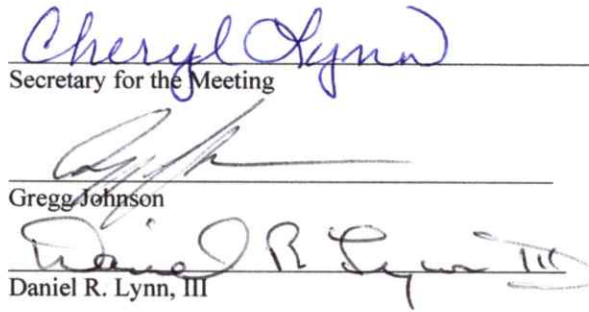 Cheryl Lynn
Secretary for the Meeting
Gregg Johnson
Daniel R Lynn III
Daniel R. Lynn, III